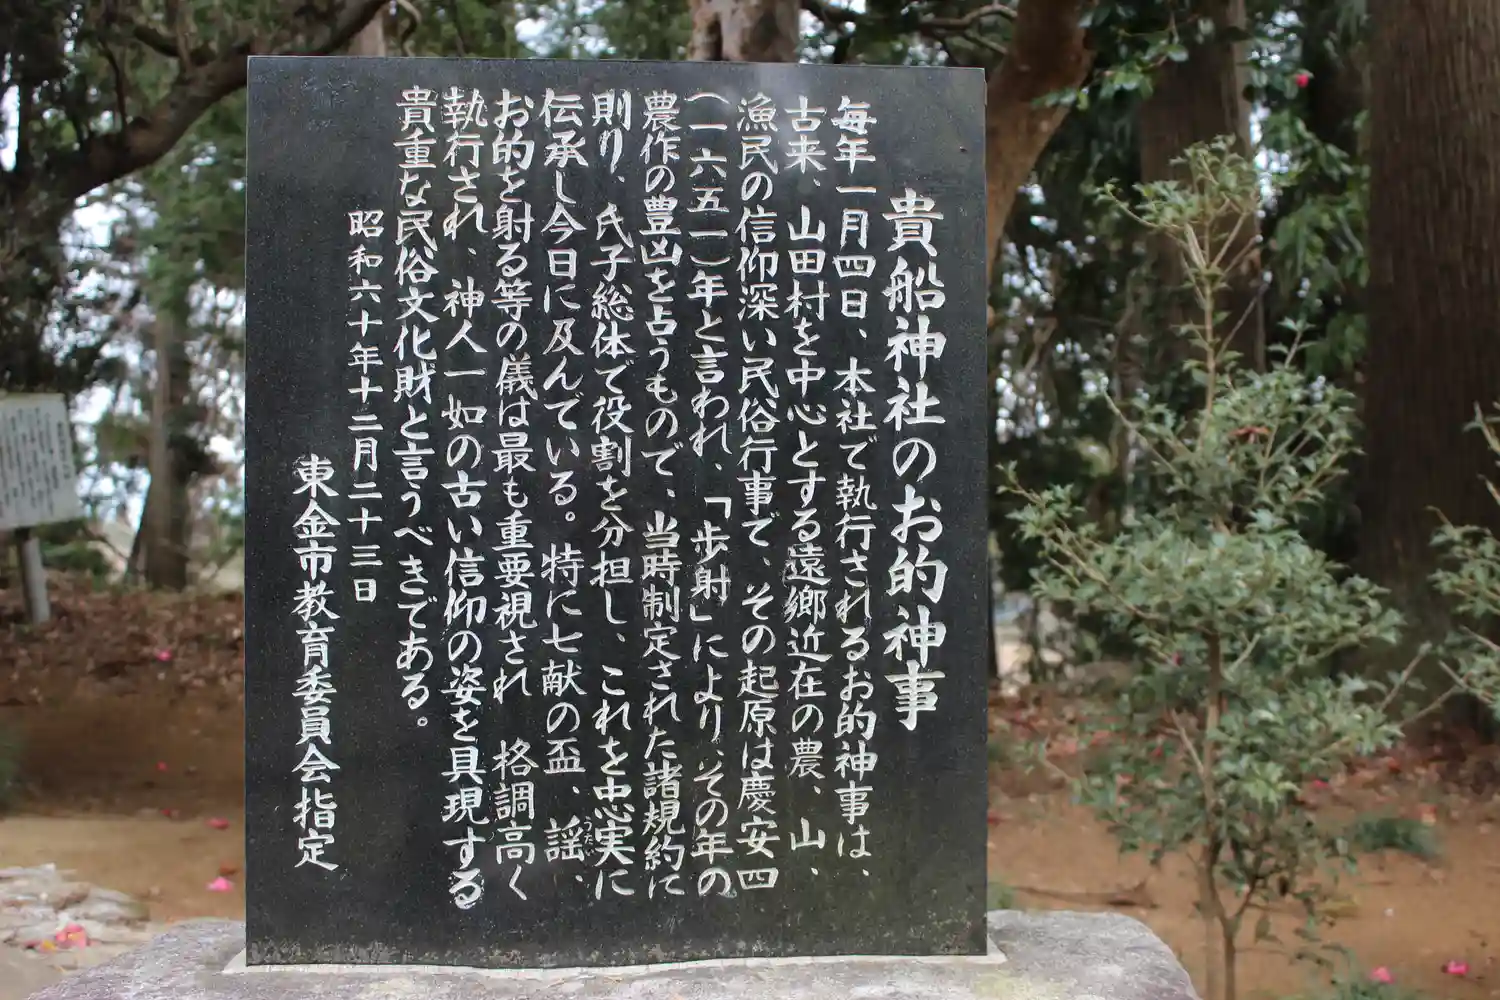 貴船神社のお的神事
毎年一月四日、本社で執行されるお的神事は、
古来、山田村を中心とする遠郷近在の農、山、
漁民の信仰深い民俗行事で、その起原は慶安四
(一六五一)年と言われ、「歩射」により、その年の
農作の豊凶を占うもので、当時制定された諸規約に
則り、氏子総体で役割を分担し、これを忠実に
伝承し今日に及んでいる。特に七献の盃、謡、
うたい
お的を射る等の儀は最も重要視され 格調高く
執行され、神人一如の古い信仰の姿を具現する
貴重な民俗文化財と言うべきである。
昭和六十年十二月二十三日
東金市教育委員会指定